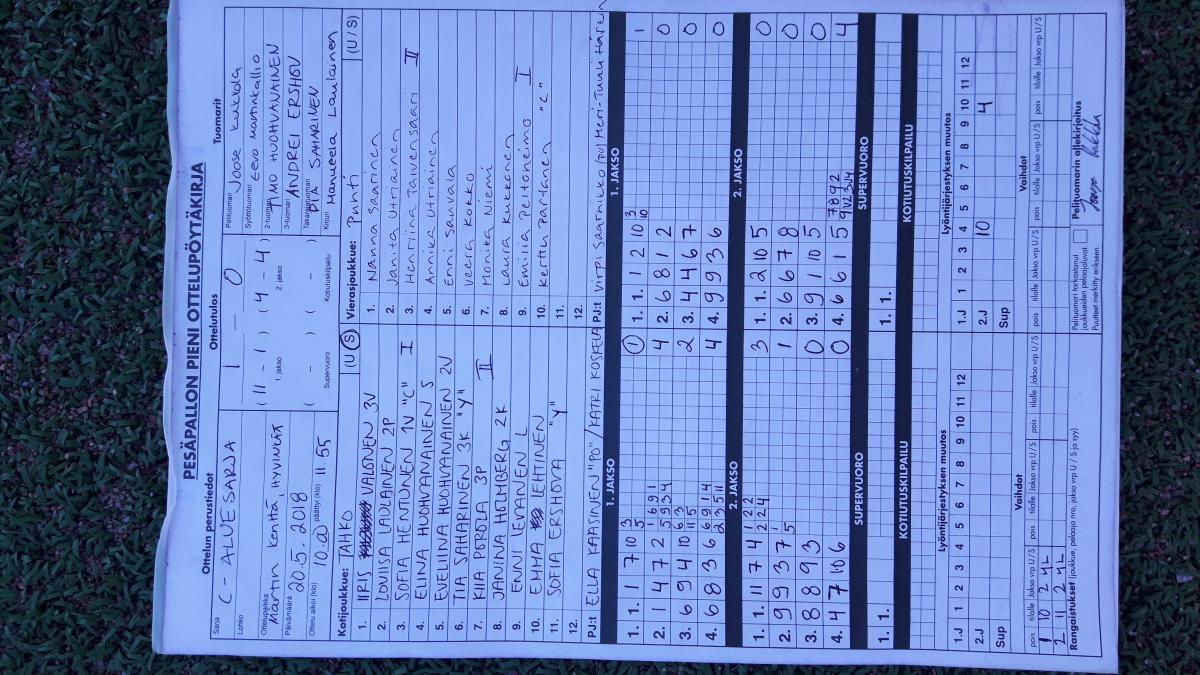 PESÄPALLON PIENI OTTELUPÖYTÄKIRJA
Ottelun perustiedot
Ottelutulos
Tuomarit
Sarja
C - ALUESARJA
Lohko
Ottelupaikka
Martin Kenttä, HYVINKÄÄ
Päivämäärä
20.5.2018
Ottelu alkoi (klo) 10.00 päättyi (klo) 11.55
1 - 0
( 11 - 1 ) ( 4 - 4 )
1. jakso 2. jakso
( - ) ( - )
Supervuoro Kotiutuskilpailu
Pelituomari
Joose Kukkola
Syöttötuomari
Eevo Martinkallio
2-tuomari
TIMO HUOHVANAINEN
3-tuomari
ANDREI ERSHOV
Takarajatuomari
PIA SAHARINEN
Kirjuri
Manueela Laulainen
Kotijoukkue: TAHKO (U/S)
1. IIRIS VALONEN 3V
2. LOUISA LAULAINEN 2P
3. SOFIA HENTUNEN 1V "C" I
4. ELINA HUOHVANAINEN S
5. EVELIINA HUOHVANAINEN 2V
6. TIIA SAHARINEN 3K "Y"
7. KIIA POROLA 3P II
8. JANIINA HOLMBERG 2K
9. ENNI LEPÄNEN L
10. EMMA LEHTINEN
11. SOFIA ERSHOVA "Y"
12.
PJ:t ELLA KAASINEN "PO" / KATRI KOSKELA
Vierasjoukkue: Puhti (U/S)
1. Nanna Saarinen
2. Janita Utriainen
3. Henriina Taivensaari II
4. Annika Utriainen
5. Enni Sauvala
6. Veera Kokko
7. Monika Niemi
8. Laura Kukkonen
9. Emilia Peltoneimo I
10. Kerttu Partanen "C"
11.
12.
PJ:t Virpi Saarnikko (PJ) Meri-Tuuli Härkin
1. JAKSO
1. JAKSO
1. 1. 1 7 10 3 5
1
2. 1 4 7 2 5 9 3 4 1 6 9 1
4
3. 6 9 4 10 11 5 6 3
2
4. 6 8 3 6 2 3 5 11 6 9 1 4
4
1. 1. 1 2 10 3 10
1
2. 6 8 1 2
0
3. 4 4 6 7
0
4. 9 9 3 6
0
2. JAKSO
2. JAKSO
1. 1. 11 7 4 2 2 4 1 2 2
3
2. 9 9 3 7 5 1
1
3. 8 8 9 3
0
4. 4 7 10 6
0
1. 1. 2 10 5
0
2. 6 6 7 8
0
3. 9 1 10 5
0
4. 6 6 1 5 9 1/2 3 4 7 8 9 2
4
SUPERVUORO
SUPERVUORO
1. 1.
1. 1.
KOTIUTUSKILPAILU
KOTIUTUSKILPAILU
Lyöntijärjestyksen muutos
1.J 1 2 3 4 5 6 7 8 9 10 11 12
2.J
Sup
Lyöntijärjestyksen muutos
1.J 1 2 3 4 5 6 7 8 9 10 11 12
2.J 10 4
Sup
Vaihdot
pois tilalle Jakso vrp U/S pois tilalle Jakso vrp U/S pois tilalle Jakso vrp U/S
1 10 2 4L
2 11 2 4L
Vaihdot
pois tilalle Jakso vrp U/S pois tilalle Jakso vrp U/S pois tilalle Jakso vrp U/S
Rangaistukset (joukkue, pelaaja nro, jakso vrp U / S ja syy)
Pelituomari tarkastanut
joukkueiden pelaajaluvat.
Puutteet merkitty erikseen.
Pelituomarin allekirjoitus